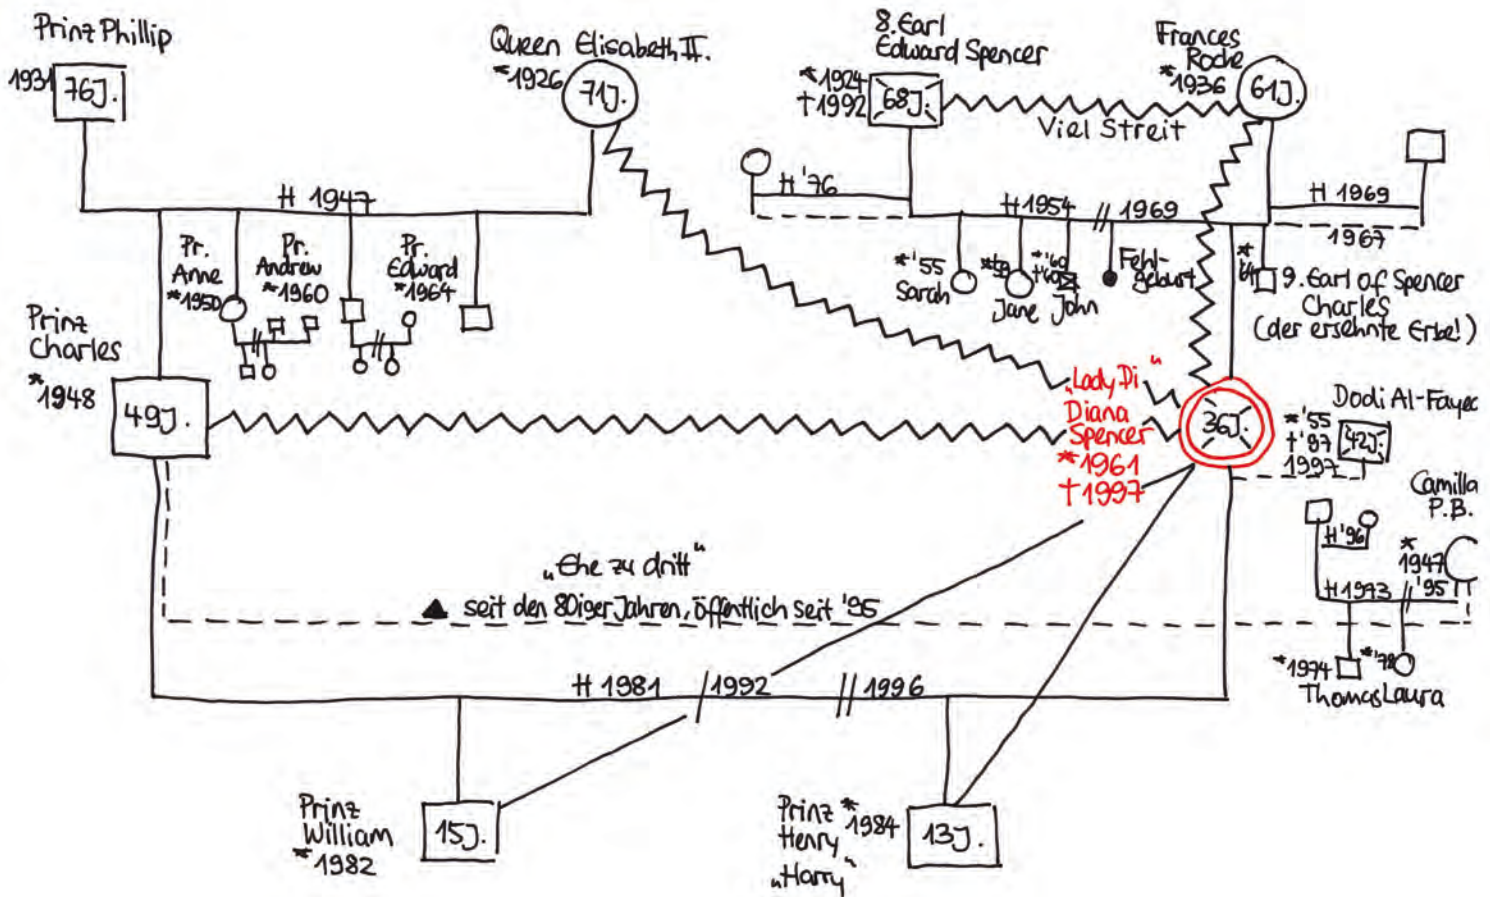 Prinz Phillip
1931
76J.
Queen Elisabeth II.
*1926
71J.
8. Earl
Edward Spencer
*1924
†1992
68J.
Frances
Roche
*1936
61J.
Viel Streit
H 1947
H '76
H 1954 // 1969
H 1969
1967
Pr.
Anne
*1950
Pr.
Andrew
*1960
Pr.
Edward
*1964
*'55
Sarah
Jane
*'60
†'60
John
Fehl-
geburt
*
'64
9. Earl of Spencer
Charles
(der ersehnte Erbe!)
Prinz
Charles
*1948
49J.
„Lady Di“
Diana
Spencer
*1961
†1997
36J.
Dodi Al-Fayed
*'55
†'97
1997
42J.
Camilla
P.B.
*
1947
H '96
H 1973 // '95
*1974
Thomas
*'78
Laura
„Ehe zu dritt“
seit den 80iger Jahren, öffentlich seit '95
H 1981 / 1992 // 1996
Prinz
William
*1982
15J.
Prinz
Henry
„Harry“
*1984
13J.